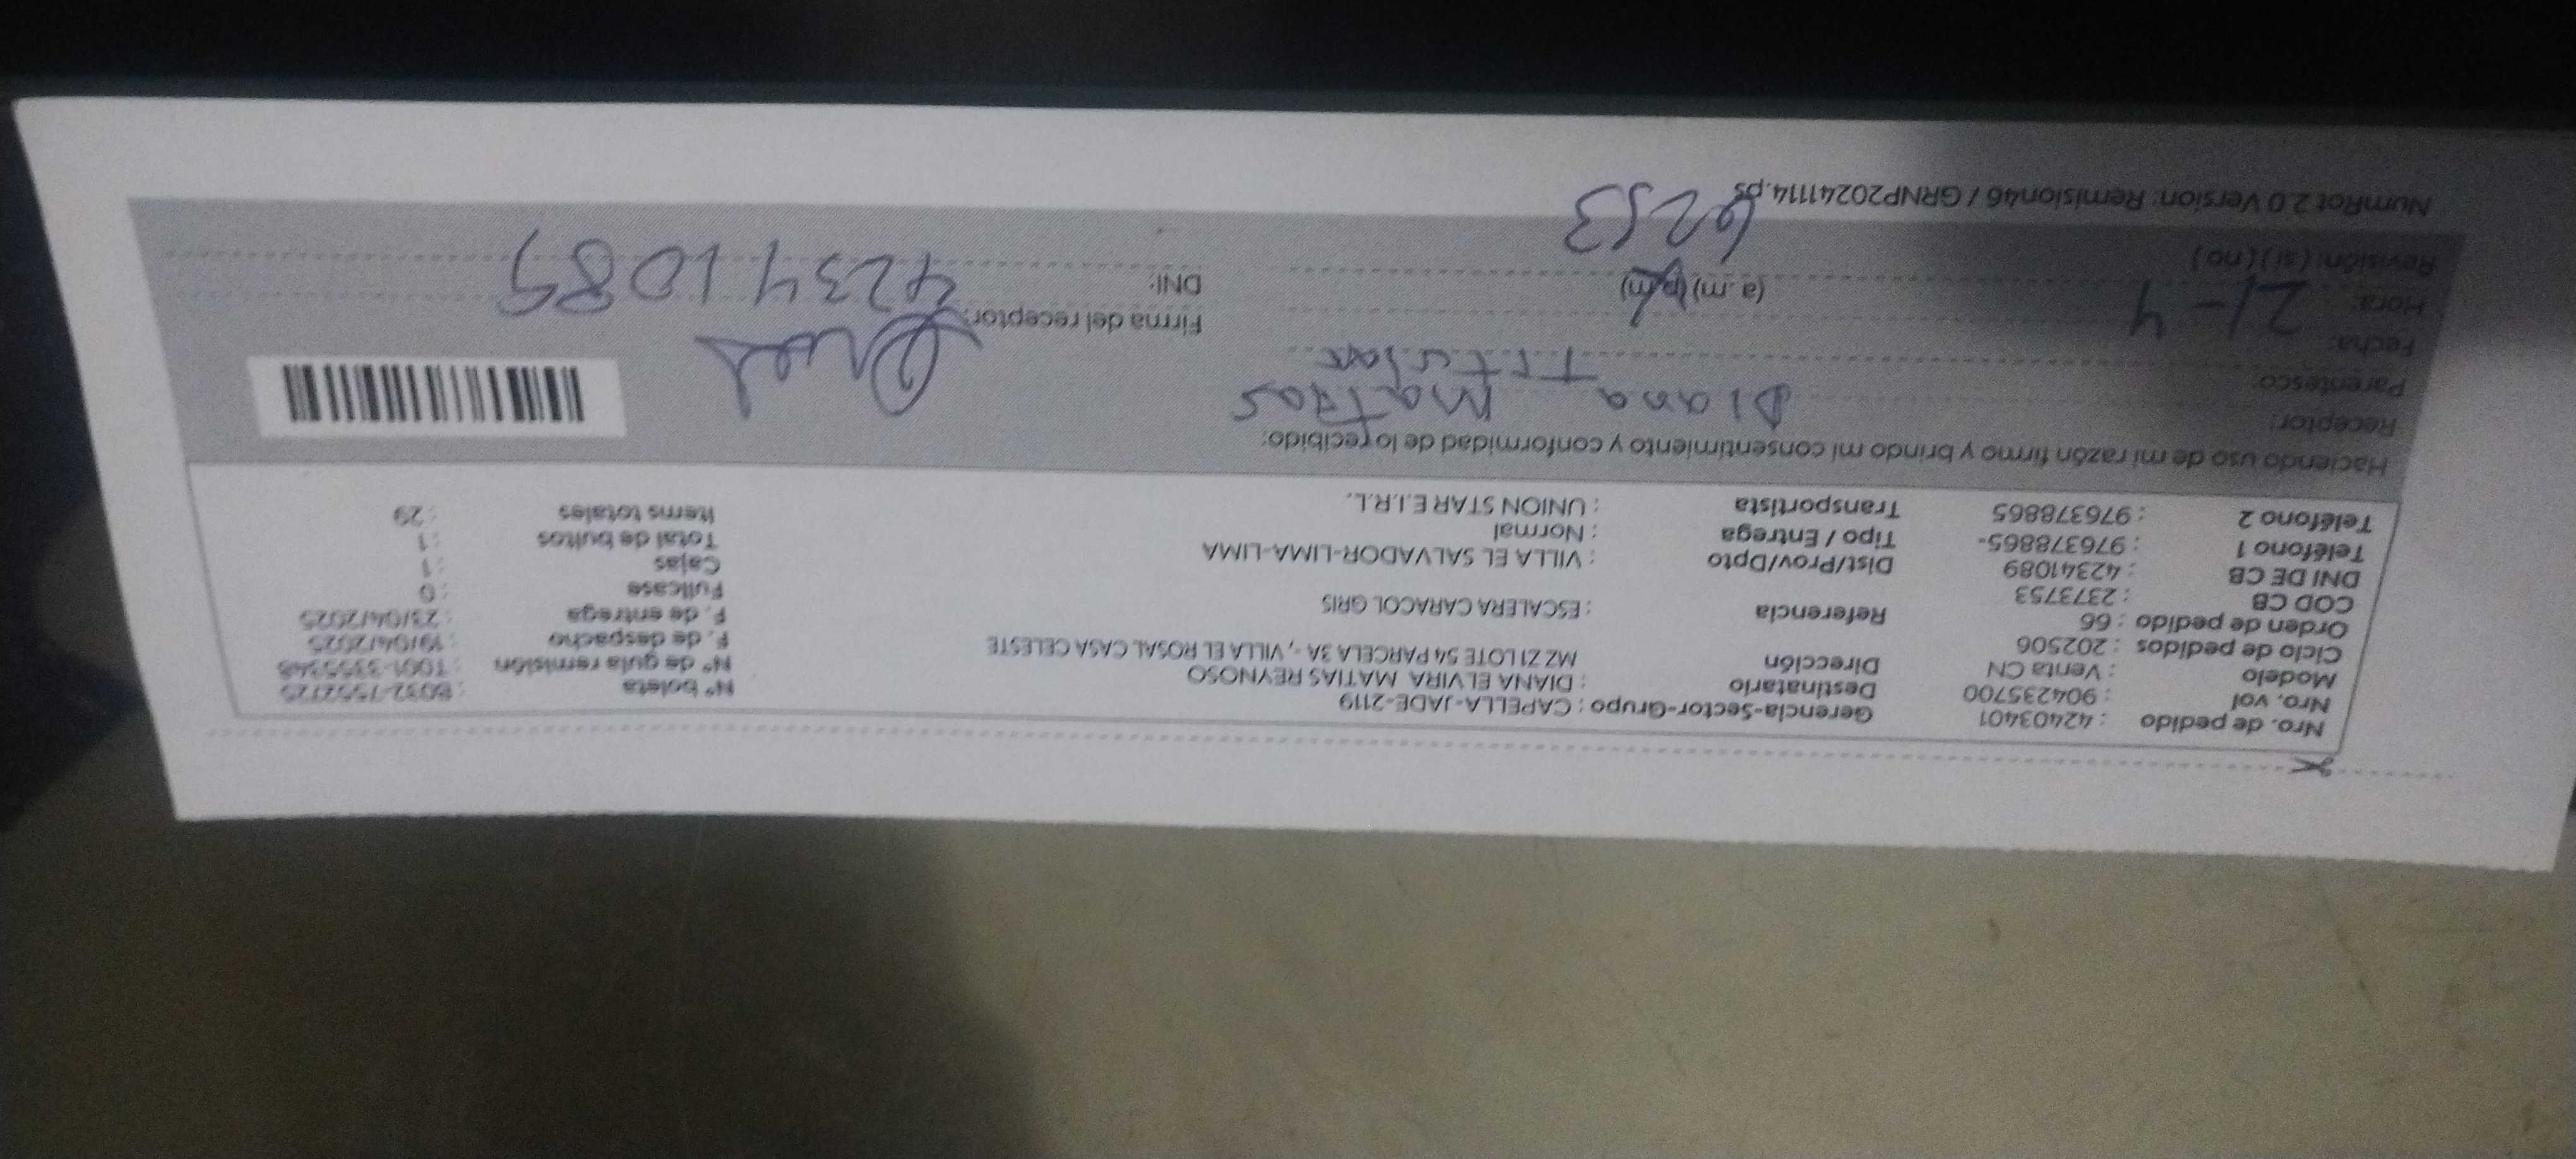 Nro. de pedido : 42403401 Gerencia-Sector-Grupo : CAPELLA-JADE-2119
Nro. vol : 904235700 Destinatario : DIANA ELVIRA MATIAS REYNOSO Nº boleta
Modelo : Venta CN Dirección MZ Z1 LOTE 54 PARCELA 3A -, VILLA EL ROSAL CASA CELESTE Nº de guía remisión
Ciclo de pedidos : 202506 F. de despacho : 19/04/2025
Orden de pedido : 66 Referencia : ESCALERA CARACOL GRIS F. de entrega : 23/04/2025
COD CB : 2373753 Fullcase : 0
DNI DE CB : 42341089 Dist/Prov/Dpto : VILLA EL SALVADOR-LIMA-LIMA Cajas : 1
Teléfono 1 : 976378865- Tipo / Entrega : Normal Total de bultos : 1
Teléfono 2 : 976378865 Transportista : UNION STAR E.I.R.L. Items totales : 29
Haciendo uso de mi razón firmo y brindo mi consentimiento y conformidad de lo recibido:
Receptor: Diana Matias
Parentesco: Titular
Fecha: 21-4
Hora: (a.m) (p.m) Firma del receptor:
Revisión: (si) (no) 6253 DNI: 42341089
NumRot 2.0 Version: Remision46 / GRNP20241114.ps